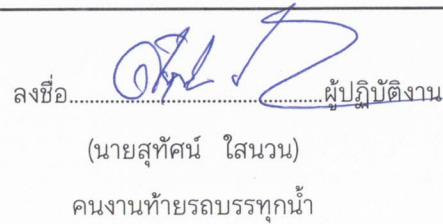 ลงชื่อ..............................................ผู้ปฏิบัติงาน
(นายสุทัศน์ ใสนวน)
คนงานท้ายรถบรรทุกน้ำ